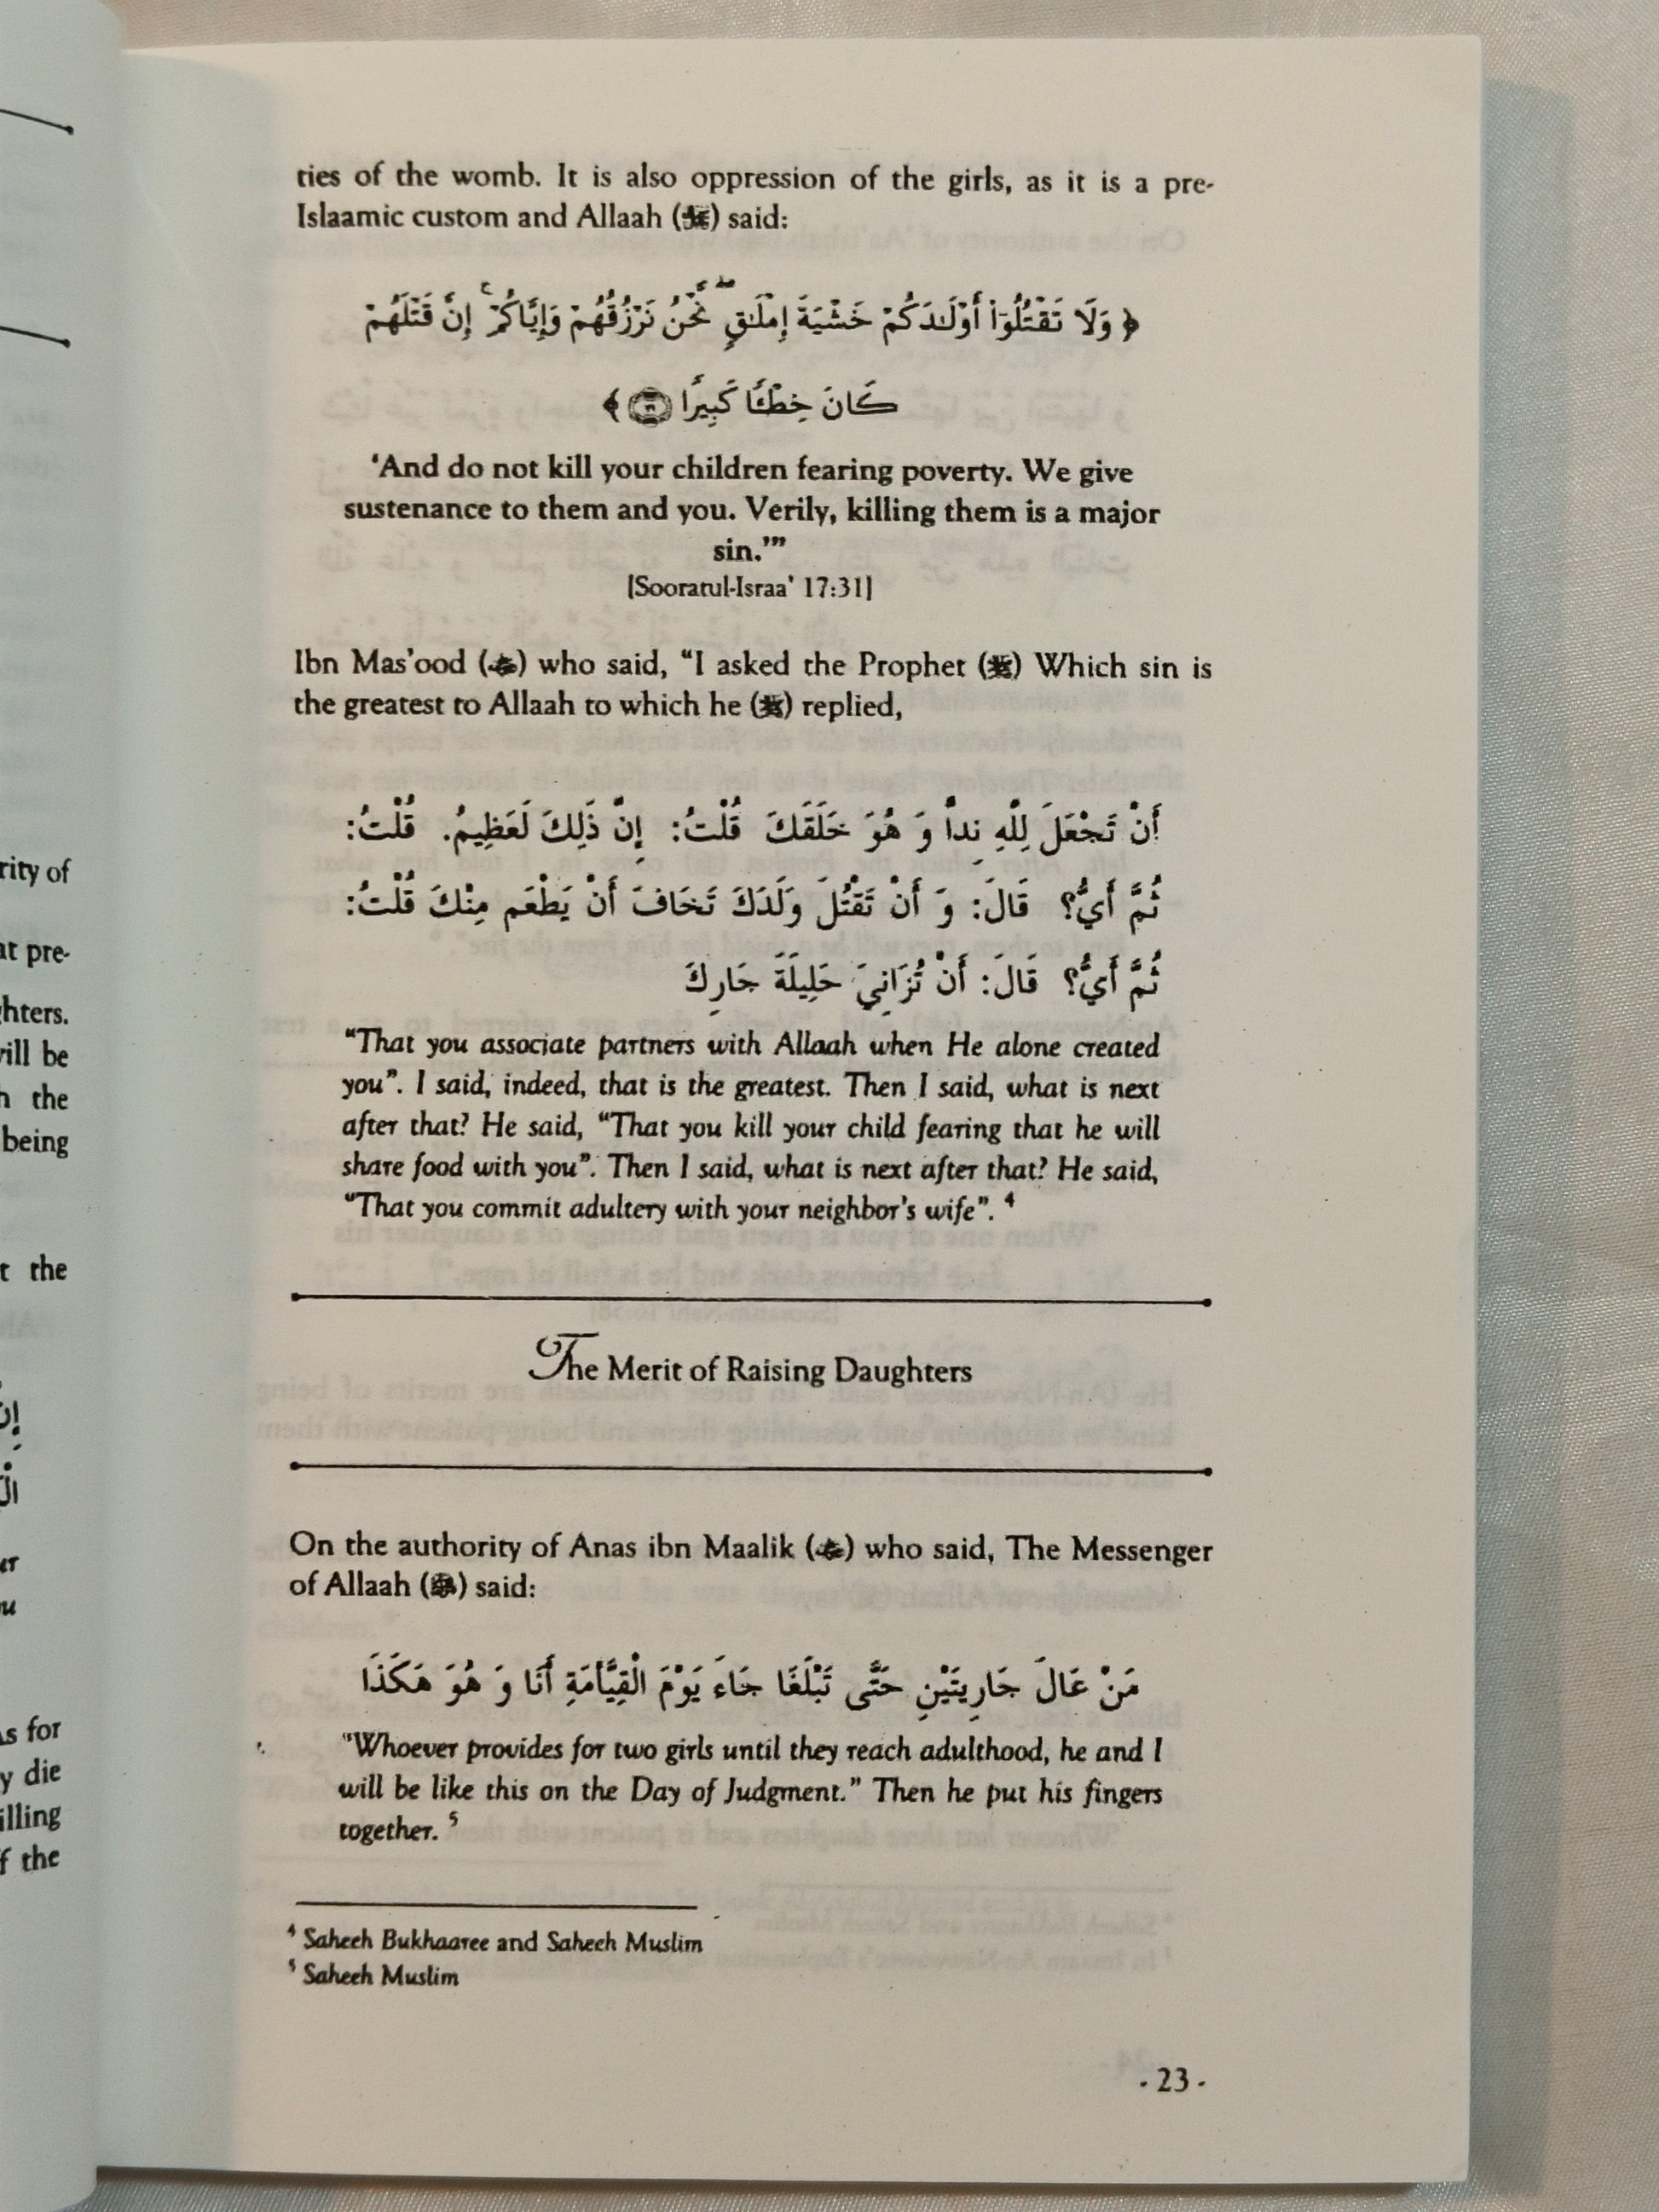 ties of the womb. It is also oppression of the girls, as it is a pre-
Islaamic custom and Allaah (ﷻ) said:
﴿ وَلَا تَقْتُلُوٓا۟ أَوْلَـٰدَكُمْ خَشْيَةَ إِمْلَـٰقٍۢ ۖ نَّحْنُ نَرْزُقُهُمْ وَإِيَّاكُمْ ۚ إِنَّ قَتْلَهُمْ
كَانَ خِطْـًۭٔا كَبِيرًۭا ٣١ ﴾
‘And do not kill your children fearing poverty. We give
sustenance to them and you. Verily, killing them is a major
sin.’”
[Sooratul-Israa' 17:31]
Ibn Mas'ood () who said, “I asked the Prophet (ﷺ) Which sin is
the greatest to Allaah to which he (ﷺ) replied,
أَنْ تَجْعَلَ لِلَّهِ نِداً وَ هُوَ خَلَقَكَ قُلْتُ: إِنَّ ذَلِكَ لَعَظِيمُ. قُلْتُ:
ثُمَّ أَيُّ؟ قَالَ: وَ أَنْ تَقْتُلَ وَلَدَكَ تَخَافَ أَنْ يَطْعَم مِنْكَ قُلْتُ:
ثُمَّ أَيُّ؟ قَالَ: أَنْ تُزَانِيَ حَلِيلَةَ جَارِكَ
“That you associate partners with Allaah when He alone created
you”. I said, indeed, that is the greatest. Then I said, what is next
after that? He said, “That you kill your child fearing that he will
share food with you”. Then I said, what is next after that? He said,
“That you commit adultery with your neighbor's wife”. 4
The Merit of Raising Daughters
On the authority of Anas ibn Maalik () who said, The Messenger
of Allaah (ﷺ) said:
مَنْ عَالَ جَارِيتَيْنِ حَتَّى تَبْلُغَا جَاءَ يَوْمَ الْقِيَّأمَةِ أَنَا وَ هُوَ هَكَذَا
"Whoever provides for two girls until they reach adulthood, he and I
will be like this on the Day of Judgment.” Then he put his fingers
together. 5
4 Saheeh Bukhaaree and Saheeh Muslim
5 Saheeh Muslim
- 23 -
rity of
at pre-
hters.
vill be
h the
being
t the
إِن
ur
ou
As for
y die
illing
f the